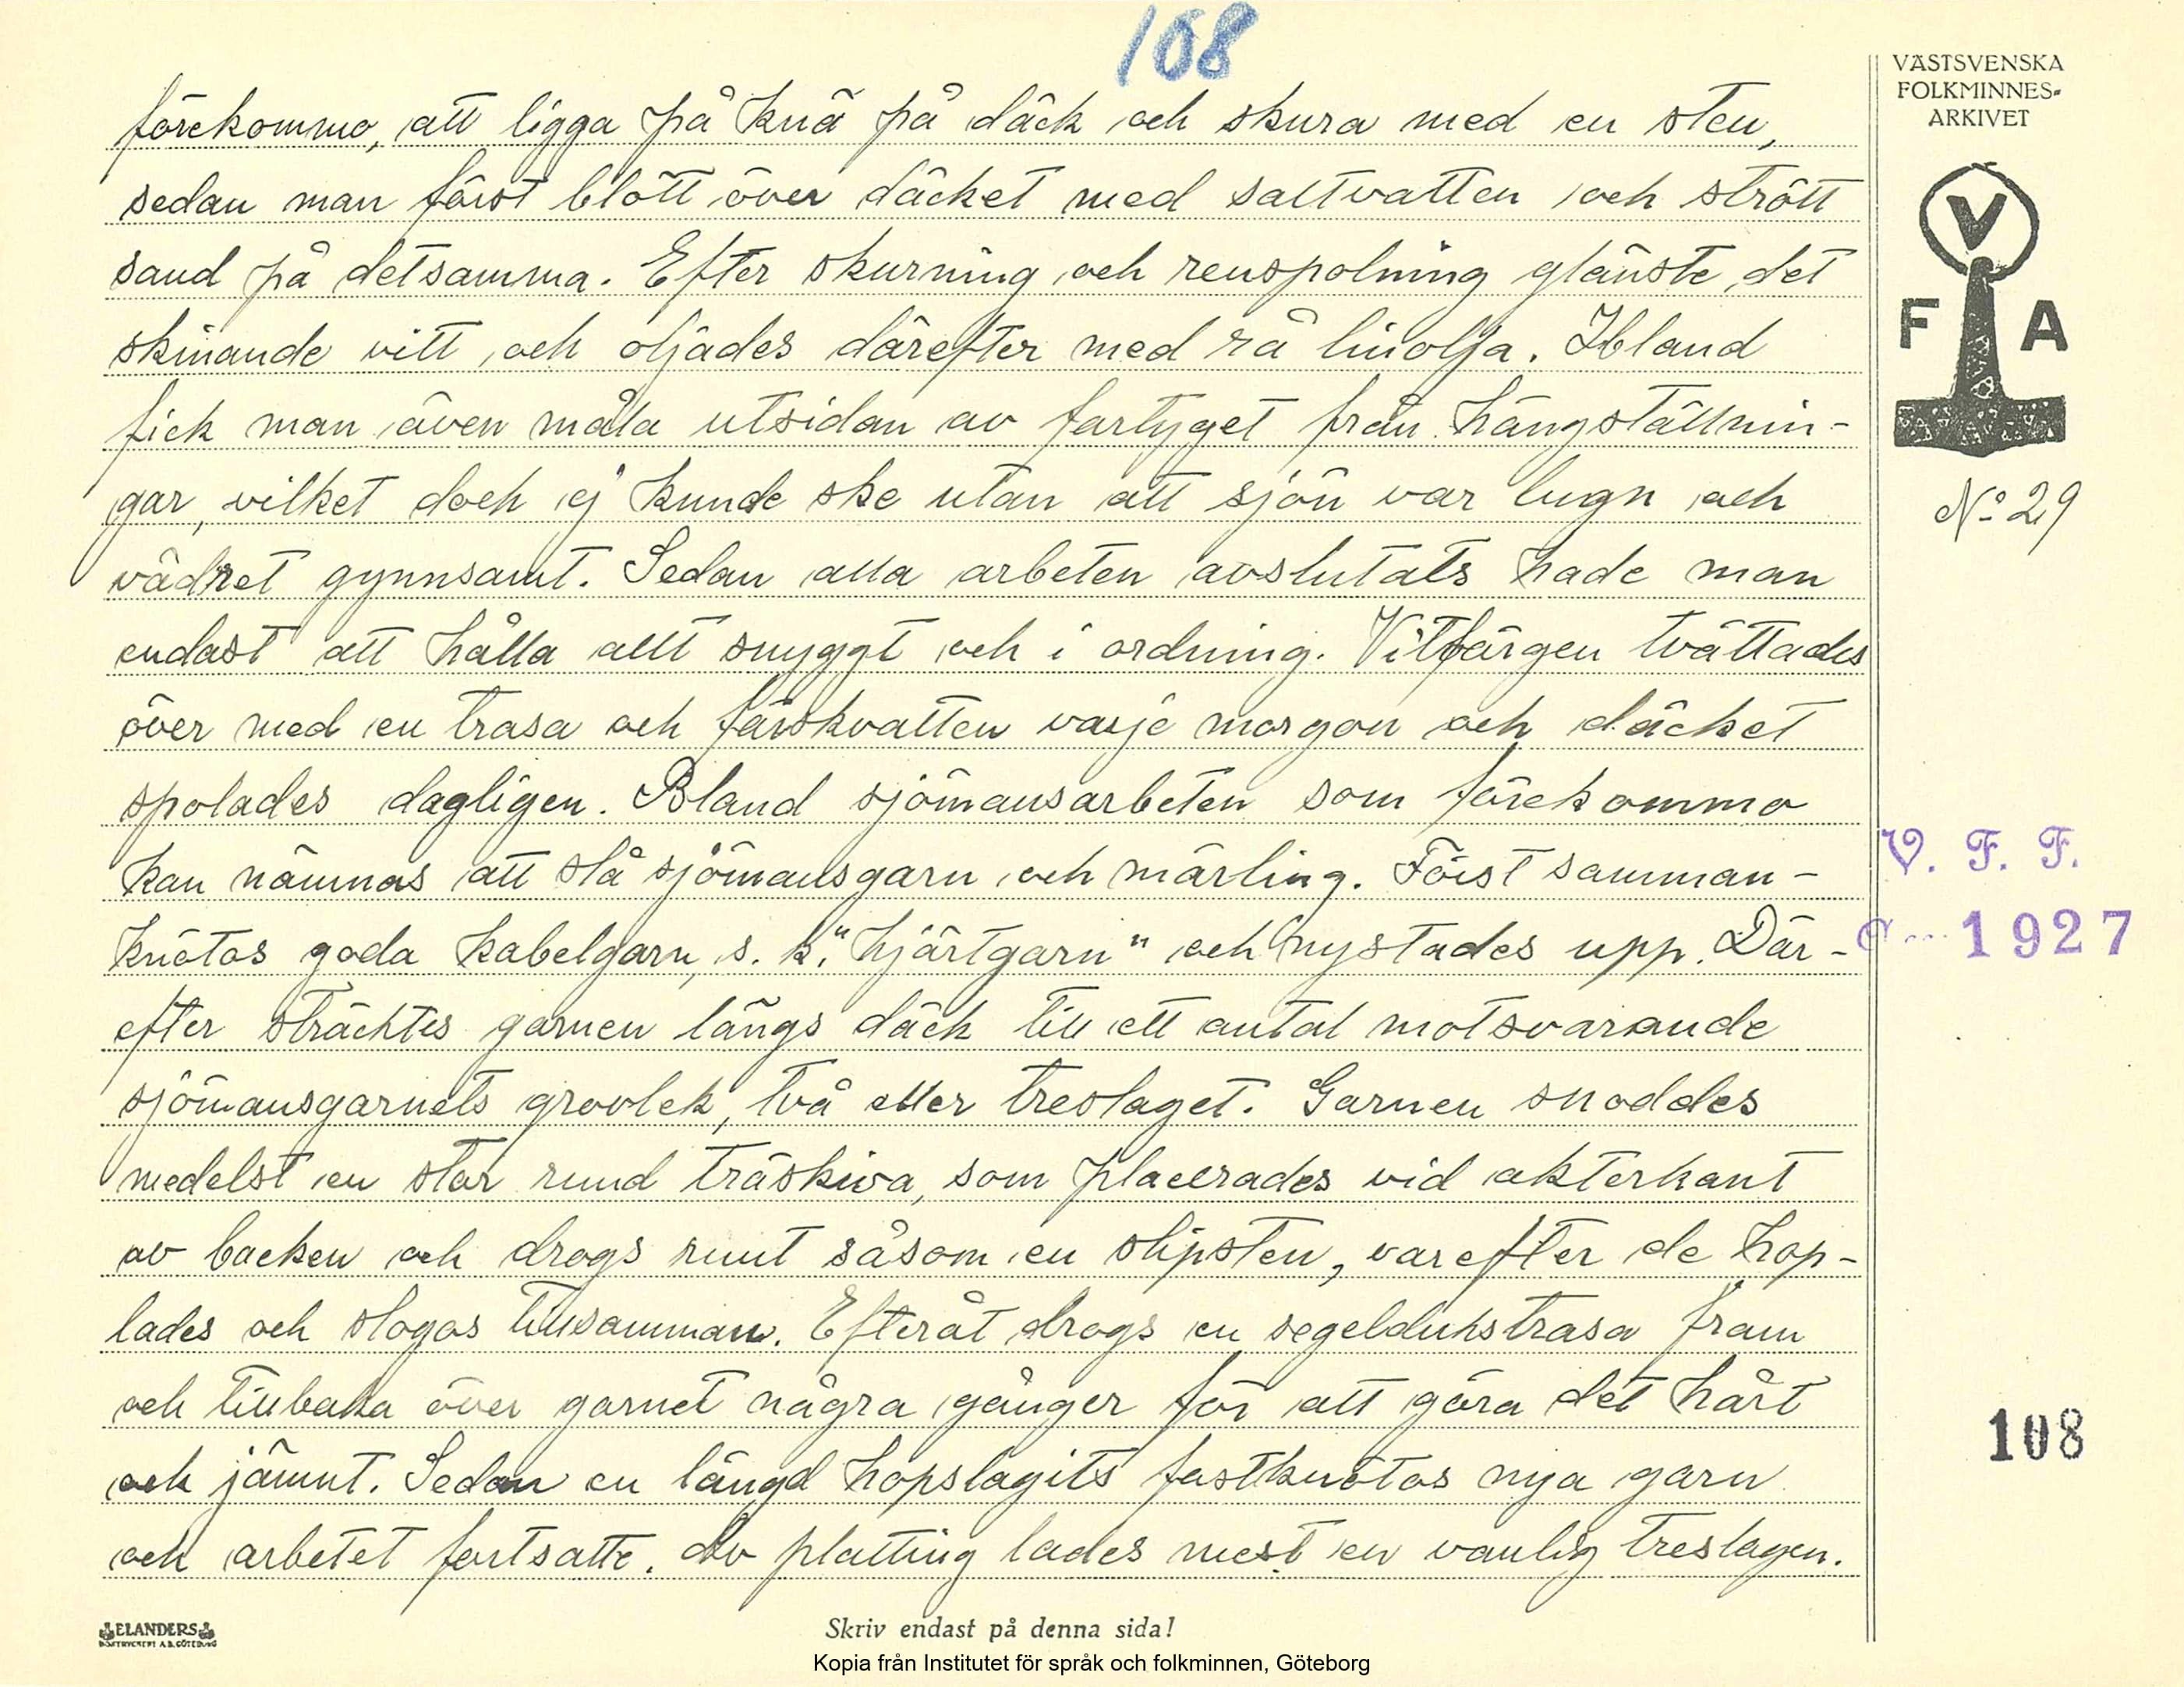 108
förekommo, att ligga på knä på däck och skura med en sten,
sedan man först blött över däcket med saltvatten och strött
sand på detsamma. Efter skurning och renspolning glänste det
skinande vitt och oljades därefter med rå linolja. Ibland
fick man även måla utsidan av fartyget från hängställnin-
gar, vilket doch ej kunde ske utan att sjön var lugn och
vädret gynnsamt. Sedan alla arbeten avslutats hade man
endast att hålla allt snyggt och i ordning. Vitfärgen tvättades
över med en trasa och färskvatten varje morgon och däcket
spolades dagligen. Bland sjömansarbeten som förekommo
kan nämnas att slå sjömansgarn och märling. Först samman-
knötos goda kabelgarn, s. k. "hjärtgarn" och nystades upp. Där-
efter sträcktes garnen längs däck till ett antal motsvarande
sjömansgarnets grovlek, två eller treslaget. Garnen snoddes
medelst en stor rund träskiva, som placerades vid akterkant
av backen och drogs runt såsom en slipsten, varefter de hop-
lades och slogos tillsamman. Efteråt drogs en segelduhstrasa fram
och tillbaka över garnet några gånger för att göra det hårt
och jämnt. Sedan en längd hopslagits fastknötos nya garn
och arbetet fortsatte. Av platting lades mest en vanlig treslagen.
VÄSTSVENSKA
FOLKMINNES-
ARKIVET
V
F A
No 29
V. F. F.
1927
108
ELANDERS
BOKTRYCKERI A.B. GÖTEBORG
Skriv endast på denna sida!
Kopia från Institutet för språk och folkminnen, Göteborg